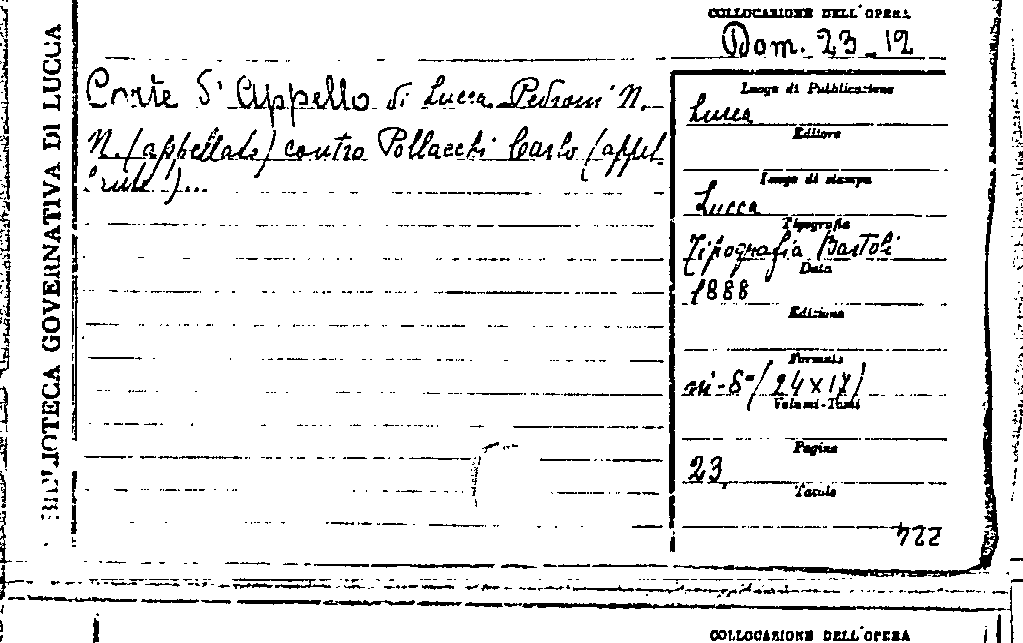 COLLOCAZIONE DELL'OPERA
Dom. 23_12
BIBLIOTECA GOVERNATIVA DI LUCCA
Corte d'Appello di Lucca. Pedroni N.
N. (appellato) contro Pollacchi Carlo (appel-
lante)...
Luogo di Pubblicazione
Lucca
Editore
Luogo di stampa
Lucca
Tipografia
Tipografia Bartoli
Data
1888
Edizione
Formato
in-8° (24x17)
Volumi-Tomi
Pagine
23
Tavole
722
COLLOCAZIONE DELL'OPERA